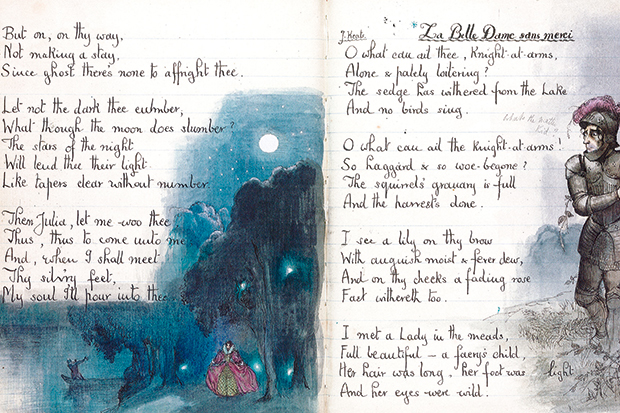 But on, on thy way,
Not making a stay,
Since ghost there's none to affright thee.
Let not the dark thee cumber,
What though the moon does slumber?
The stars of the night
Will lend thee their light
Like tapers clear without number.
Then Julia, let me woo thee
Thus, thus to come unto me
And, when I shall meet
Thy silv'ry feet,
My soul I'll pour into thee
J. Keats. La Belle Dame sans merci
O what can ail thee, Knight-at-arms,
Alone & palely loitering?
The sedge has withered from the Lake
And no birds sing.
O what can ail the Knight-at-arms!
So haggard & so woe-begone?
The squirrels' granary is full
And the harvest's done.
I see a lily on thy brow
With anguish moist & fever dew,
And on thy cheeks a fading rose
Fast withereth too.
I met a Lady in the meads,
Full beautiful – a faery's child,
Her hair was long, her foot was light
And her eyes were wild.